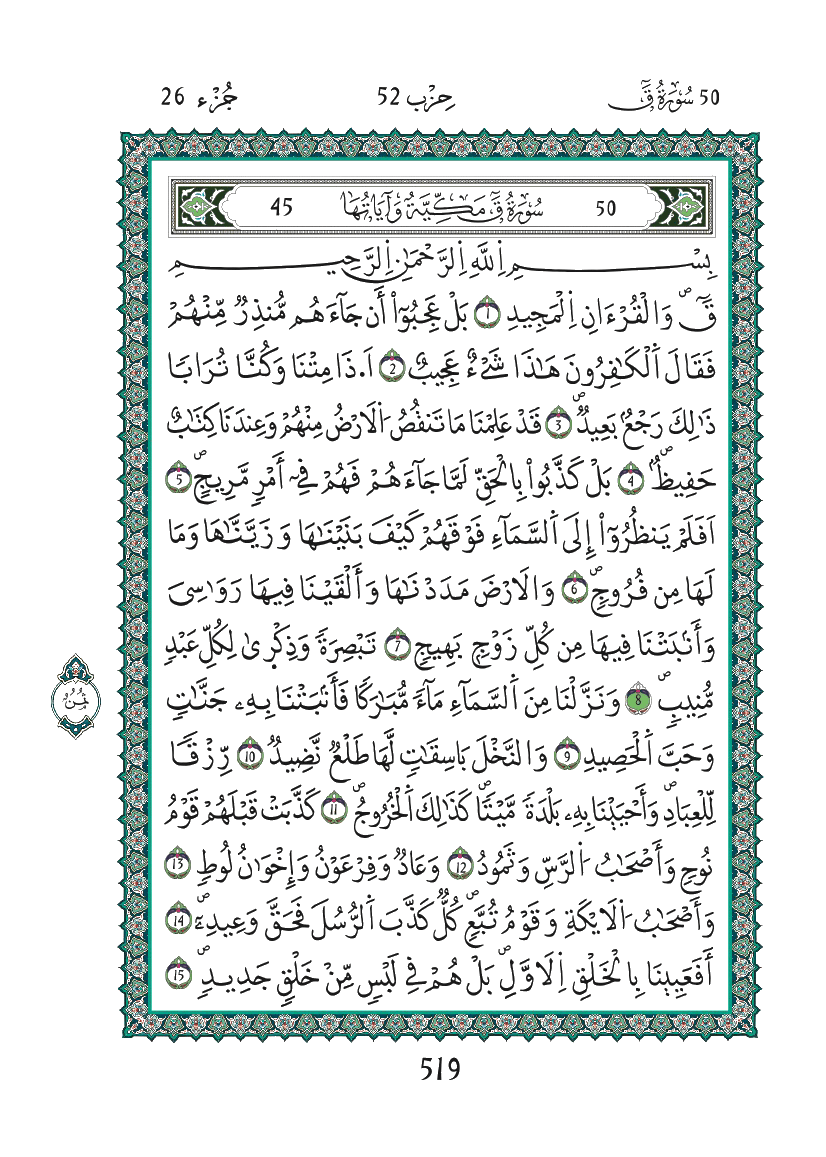 50 سُورَةُ قٓ حِزْب 52 جُزْء 26
50 سُورَةُ قٓ مَكِّيَّةٌ وَءَايَاتُهَا 45
بِسْمِ اِ۬للَّهِ اِ۬لرَّحْمَٰنِ اِ۬لرَّحِيمِ
قٓۖ وَالْقُرْءَانِ اِ۬لْمَجِيدِ 1 بَلْ عَجِبُوٓاْ أَن جَآءَهُم مُّنذِرٌ مِّنْهُمْ
فَقَالَ اَ۬لْكَٰفِرُونَ هَٰذَا شَےْءٌ عَجِيبٌ 2 اَ.ذَا مِتْنَا وَكُنَّا تُرَابًا
ذَٰلِكَ رَجْعُۢ بَعِيدٌۖ 3 قَدْ عَلِمْنَا مَا تَنقُصُ اُ۬لَارْضُ مِنْهُمْ وَعِندَنَا كِتَٰبٌ
حَفِيظُۢۖ 4 بَلْ كَذَّبُواْ بِالْحَقِّ لَمَّا جَآءَهُمْ فَهُمْ فِےٓ أَمْرٍ مَّرِيجٍۖ 5
اَفَلَمْ يَنظُرُوٓاْ إِلَى اَ۬لسَّمَآءِ فَوْقَهُمْ كَيْفَ بَنَيْنَٰهَا وَزَيَّنَّٰهَا وَمَا
لَهَا مِن فُرُوجٍۖ 6 وَالَارْضَ مَدَدْنَٰهَا وَأَلْقَيْنَا فِيهَا رَوَٰسِىَ
وَأَنۢبَتْنَا فِيهَا مِن كُلِّ زَوْجِۢ بَهِيجٍ 7 تَبْصِرَةً وَذِكْر۪ىٰ لِكُلِّ عَبْدٍ
مُّنِيبٍۖ 8 وَنَزَّلْنَا مِنَ اَ۬لسَّمَآءِ مَآءً مُّبَٰرَكًا فَأَنۢبَتْنَا بِهِۦ جَنَّٰتٍ
وَحَبَّ اَ۬لْحَصِيدِ 9 وَالنَّخْلَ بَاسِقَٰتٍ لَّهَا طَلْعٌ نَّضِيدٌ 10 رِّزْقًا
لِّلْعِبَادِۖ وَأَحْيَيْنَا بِهِۦ بَلْدَةً مَّيْتًاۖ كَذَٰلِكَ اَ۬لْخُرُوجُۖ 11 كَذَّبَتْ قَبْلَهُمْ قَوْمُ
نُوحٍ وَأَصْحَٰبُ اُ۬لرَّسِّ وَثَمُودُ 12 وَعَادٌ وَفِرْعَوْنُ وَإِخْوَٰنُ لُوطٍ 13
وَأَصْحَٰبُ اُ۬لَايْكَةِ وَقَوْمُ تُبَّعٍۖ كُلٌّ كَذَّبَ اَ۬لرُّسُلَ فَحَقَّ وَعِيدِۦٓۖ 14
أَفَعَيِينَا بِالْخَلْقِ اِ۬لَاوَّلِۖ بَلْ هُمْ فِے لَبْسٍ مِّنْ خَلْقٍ جَدِيدٍۖ 15
ثُمُنُ
519